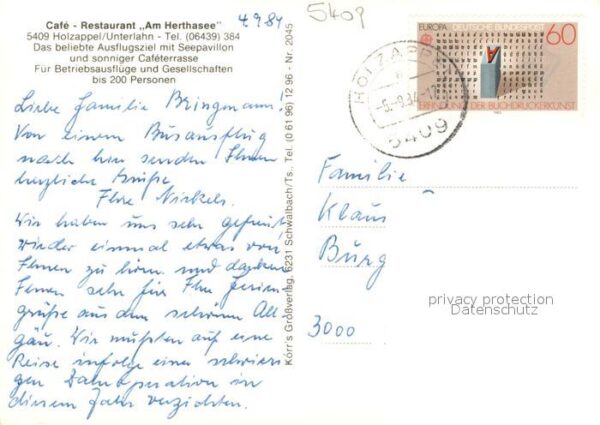 Café - Restaurant „Am Herthasee"
5409 Holzappel/Unterlahn - Tel. (06439) 384
Das beliebte Ausflugsziel mit Seepavillon
und sonniger Caféterrasse
Für Betriebsausflüge und Gesellschaften
bis 200 Personen
4.9.84
5409
Liebe Familie Bringmann!
Von einem Busausflug
nach hier senden Ihnen
herzliche Grüße
Ihre Nickels.
Wir haben uns sehr gefreut,
wieder einmal etwas von
Ihnen zu hören und danken
Ihnen sehr für Ihre Ferien-
grüße aus dem schönen All-
gäu. Wir mußten auf eine
Reise infolge einer schwieri-
gen Zahnoperation in
diesem Jahr verzichten.
Körr's Großverlag, 6231 Schwalbach/Ts. Tel. (0 61 96) 12 96 - Nr. 2045
EUROPA DEUTSCHE BUNDESPOST
60
ERFINDUNG DER BUCHDRUCKERKUNST
1983
HOLZAPPEL
a
-5.-9.84
5409
Familie
Klaus
Burg
3000
privacy protection
Datenschutz